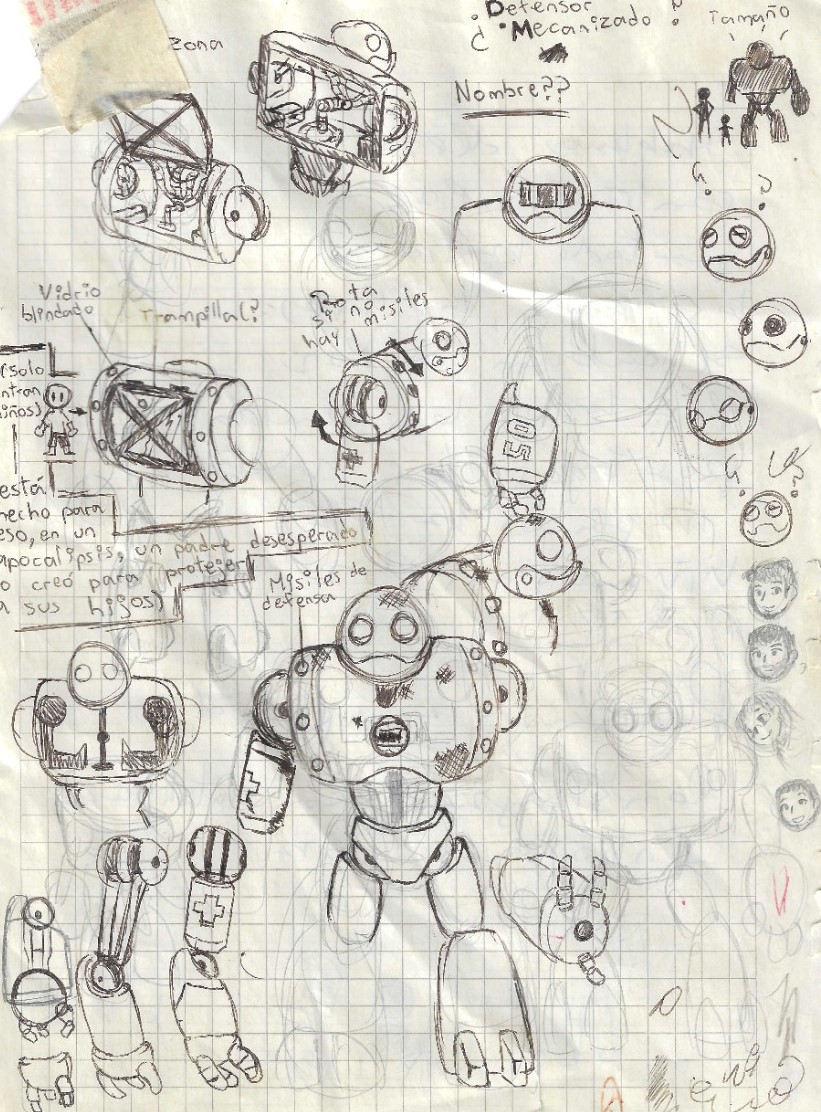 Zona
Defensor
¿ Mecanizado ?
Tamaño
Nombre??
Vidrio
blindado
Trampilla(?
Rota
si no
hay misiles
(solo
entran
niños)
está
hecho para
eso, en un
apocalipsis, un padre desesperado
lo creó para protejer
a sus hijos)
Misiles de
defensa
50